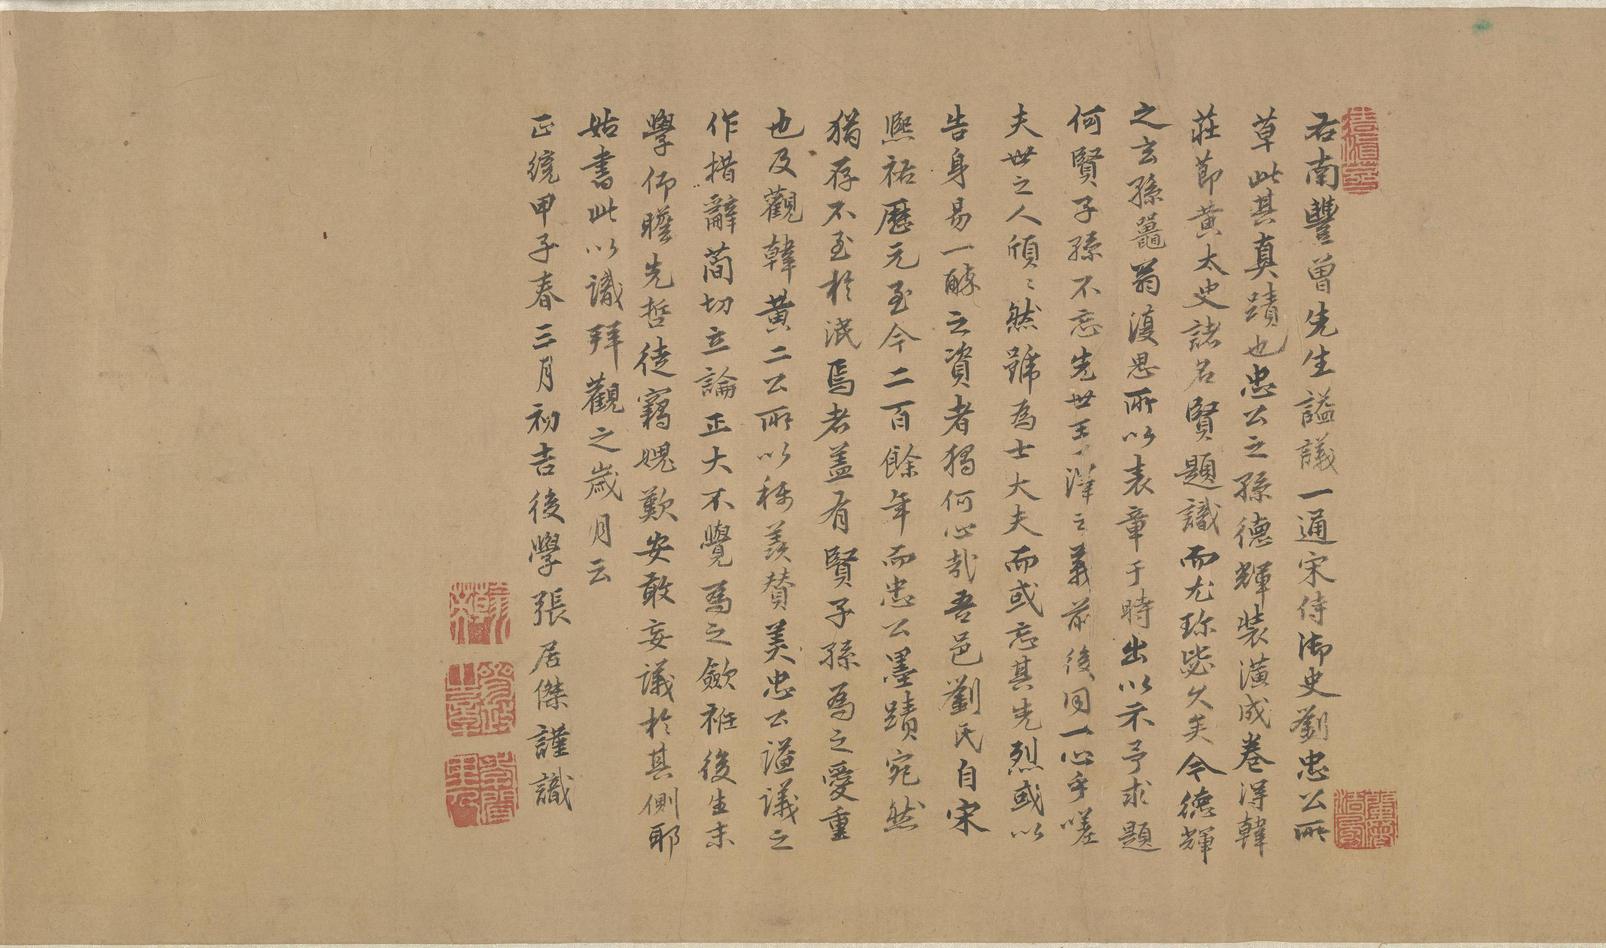 右南豐曾先生謚議一通宋侍御史劉忠公所
草此其真蹟也忠公之孫德輝裝潢成卷得韓
莊節黃太史諸名賢題識而尤珍毖久矣今德輝
之玄孫鼂翁復思所以表章于時出以示予求題
何賢子孫不忘先世手澤之義前後同一心乎嗟
夫世之人頎〻然號為士大夫而或忘其先烈或以
告身易一醉之資者獨何心哉吾邑劉氏自宋
熙祐歷元至今二百餘年而忠公墨蹟宛然
猶存不至於泯焉者蓋有賢子孫為之愛重
也及觀韓黃二公所以稱羨賛美忠公謚議之
作措辭蕳切立論正大不覺為之歛衽後生末
學仰瞻先哲徒竊媿歎安敢妄議於其側耶
姑書此以識拜觀之歲月云
正統甲子春三月初吉後學張居傑謹識